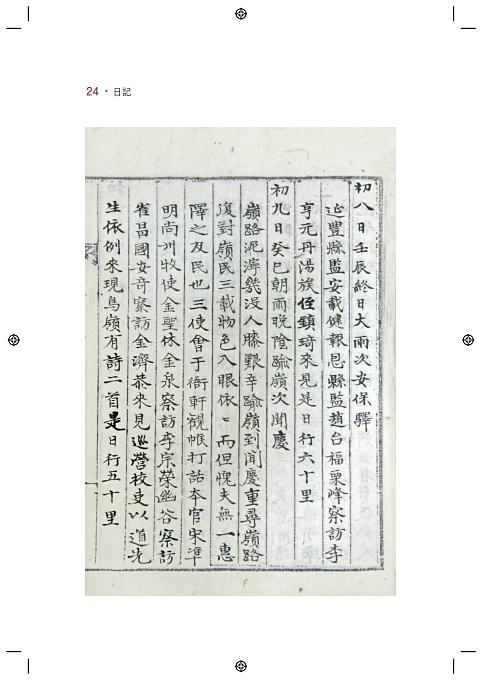 24 · 日記
初八日壬辰終日大雨次安保驛
延豊縣監安載健報恩縣監趙台福栗峰察訪李
亨元丹陽族侄鎭琦來見是日行六十里
初九日癸巳朝雨晩陰踰嶺次聞慶
嶺路泥濘幾沒人膝艱辛踰嶺到聞慶重尋嶺路
復對嶺民三載物色入眼依〻而但愧夫無一惠
澤之及民也三使會于衙軒觀帳打話本官宋準
明尙州牧使金聖休金泉察訪李宗榮幽谷察訪
崔昌國安奇察訪金濟恭來見巡營校吏以道先
生依例來現鳥嶺有詩二首是日行五十里